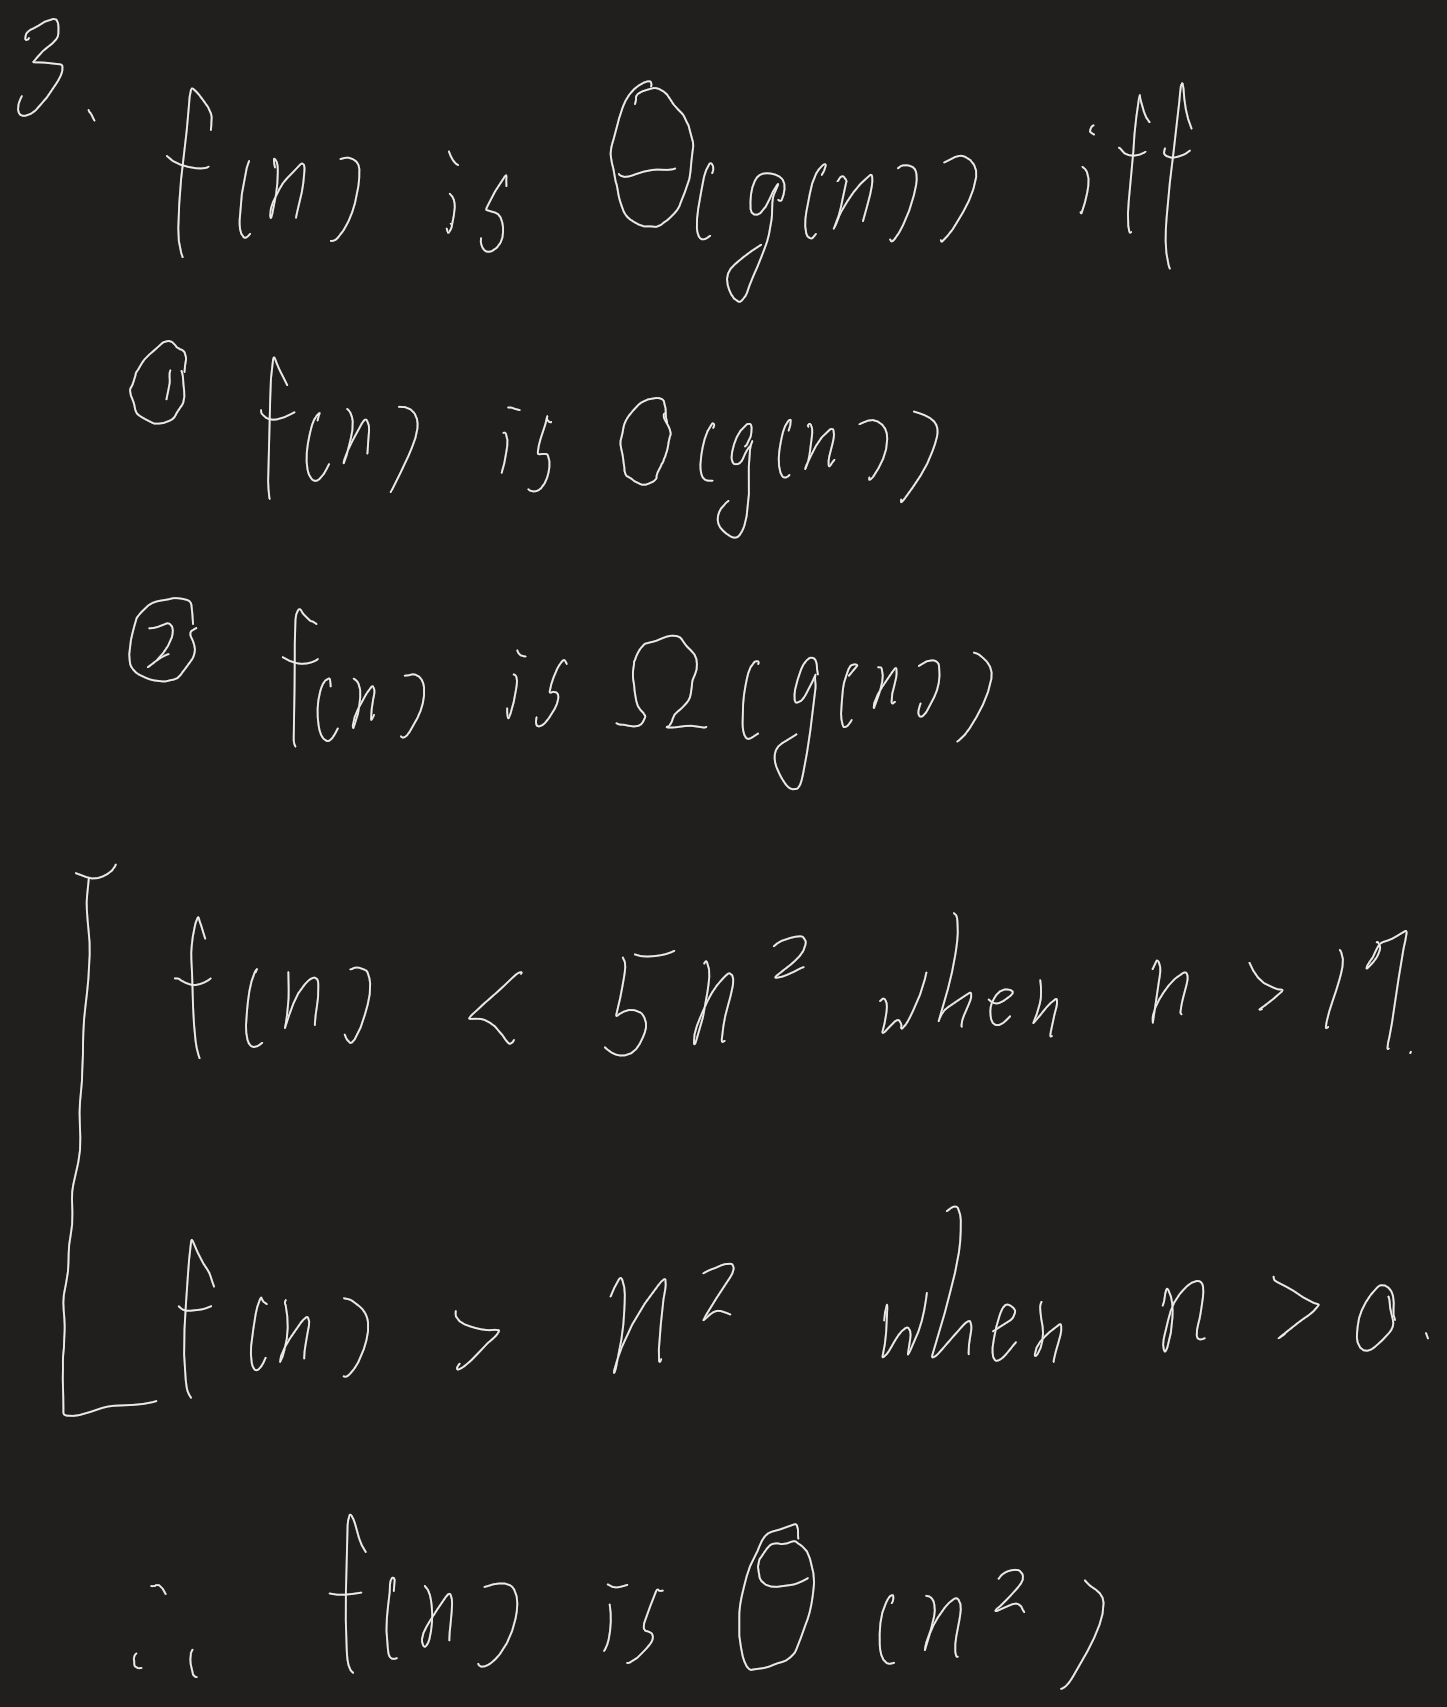 3.
f(n) is Θ(g(n)) iff
① f(n) is O(g(n))
② f(n) is Ω(g(n))
f(n) < 5n² when n > 17.
f(n) > n² when n > 0.
∴ f(n) is Θ(n²)